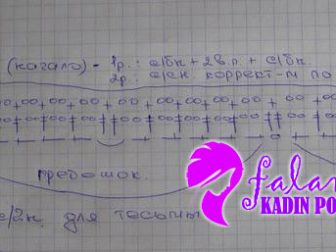 (кагало) - 1р.: с/бк + 2 в.п. + с/бк.
2р.: с/сн коррект-м по
гребошок.
с/2н для тесьмы
falan
KADIN PO